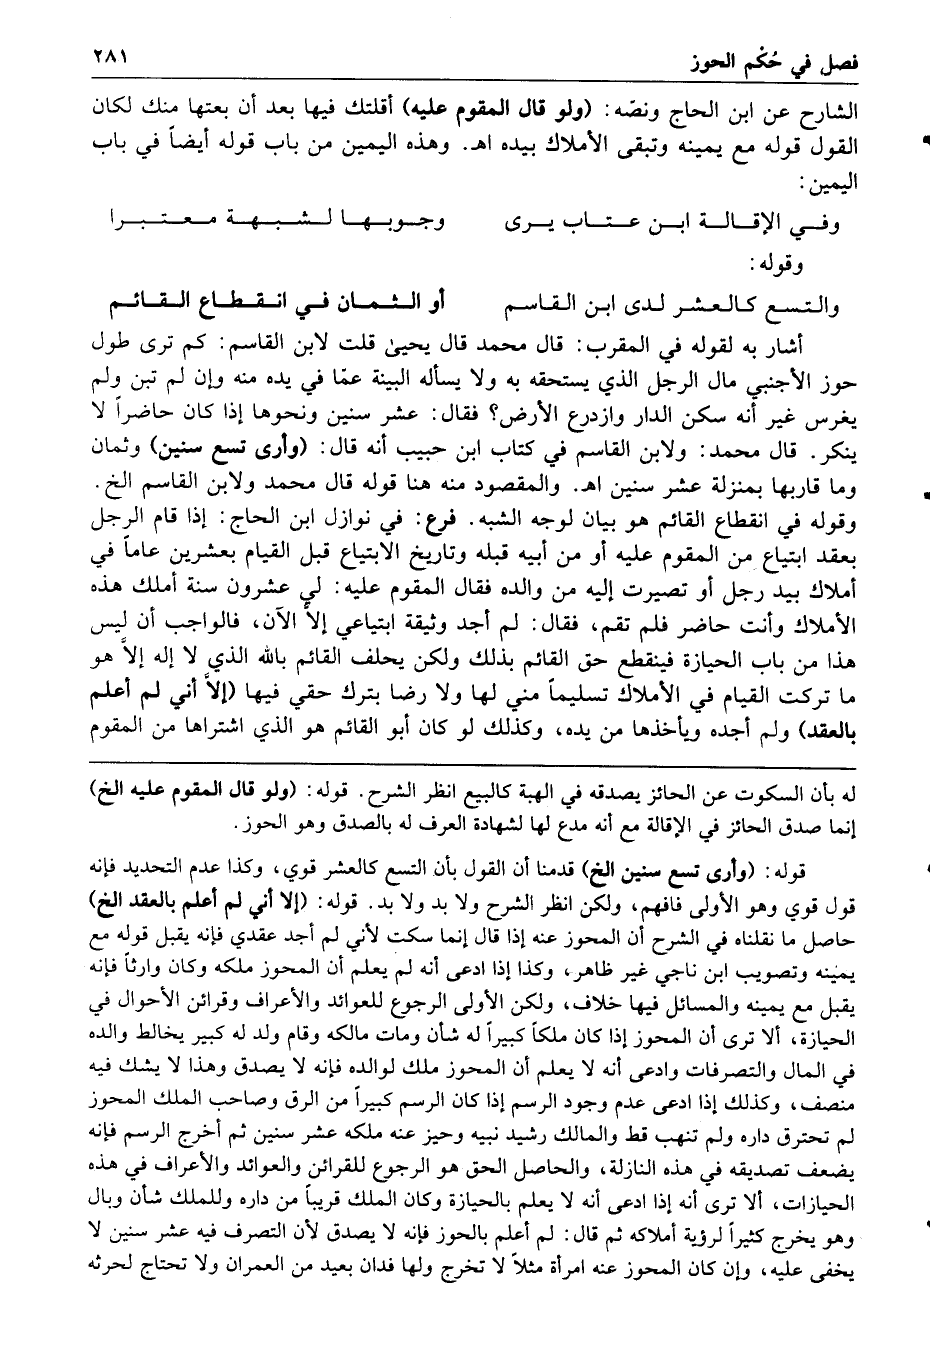 فصل في حُكْم الحوز ٢٨١
الشارح عن ابن الحاج ونصّه: (ولو قال المقوم عليه) أقلتك فيها بعد أن بعتها منك لكان
القول قوله مع يمينه وتبقى الأملاك بيده اهـ. وهذه اليمين من باب قوله أيضاً في باب
اليمين:
وفـي الإقـالـة ابـن عـتـاب يـرى وجـوبـهـا لـشـبـهـة مـعـتـبـرا
وقوله:
والـتـسـع كـالـعـشـر لـدى ابـن الـقـاسـم أو الـثـمـان فـي انـقـطـاع الـقـائـم
أشار به لقوله في المقرب: قال محمد قال يحيىٰ قلت لابن القاسم: كم ترى طول
حوز الأجنبي مال الرجل الذي يستحقه به ولا يسأله البينة عمّا في يده منه وإن لم تبن ولم
يغرس غير أنه سكن الدار وازدرع الأرض؟ فقال: عشر سنين ونحوها إذا كان حاضراً لا
ينكر. قال محمد: ولابن القاسم في كتاب ابن حبيب أنه قال: (وأرى تسع سنين) وثمان
وما قاربها بمنزلة عشر سنين اهـ. والمقصود منه هنا قوله قال محمد ولابن القاسم الخ.
وقوله في انقطاع القائم هو بيان لوجه الشبه. فرع: في نوازل ابن الحاج: إذا قام الرجل
بعقد ابتياع من المقوم عليه أو من أبيه قبله وتاريخ الابتياع قبل القيام بعشرين عاماً في
أملاك بيد رجل أو تصيرت إليه من والده فقال المقوم عليه: لي عشرون سنة أملك هذه
الأملاك وأنت حاضر فلم تقم، فقال: لم أجد وثيقة ابتياعي إلاَّ الآن، فالواجب أن ليس
هذا من باب الحيازة فينقطع حق القائم بذلك ولكن يحلف القائم بالله الذي لا إله إلاَّ هو
ما تركت القيام في الأملاك تسليماً مني لها ولا رضا بترك حقي فيها (إلاَّ أني لم أعلم
بالعقد) ولم أجده ويأخذها من يده، وكذلك لو كان أبو القائم هو الذي اشتراها من المقوم
له بأن السكوت عن الحائز يصدقه في الهبة كالبيع انظر الشرح. قوله: (ولو قال المقوم عليه الخ)
إنما صدق الحائز في الإقالة مع أنه مدع لها لشهادة العرف له بالصدق وهو الحوز.
قوله: (وأرى تسع سنين الخ) قدمنا أن القول بأن التسع كالعشر قوي، وكذا عدم التحديد فإنه
قول قوي وهو الأولى فافهم، ولكن انظر الشرح ولا بد ولا بد. قوله: (إلا أني لم أعلم بالعقد الخ)
حاصل ما نقلناه في الشرح أن المحوز عنه إذا قال إنما سكت لأني لم أجد عقدي فإنه يقبل قوله مع
يمينه وتصويب ابن ناجي غير ظاهر، وكذا إذا ادعى أنه لم يعلم أن المحوز ملكه وكان وارثاً فإنه
يقبل مع يمينه والمسائل فيها خلاف، ولكن الأولى الرجوع للعوائد والأعراف وقرائن الأحوال في
الحيازة، ألا ترى أن المحوز إذا كان ملكاً كبيراً له شأن ومات مالكه وقام ولد له كبير يخالط والده
في المال والتصرفات وادعى أنه لا يعلم أن المحوز ملك لوالده فإنه لا يصدق وهذا لا يشك فيه
منصف، وكذلك إذا ادعى عدم وجود الرسم إذا كان الرسم كبيراً من الرق وصاحب الملك المحوز
لم تحترق داره ولم تنهب قط والمالك رشيد نبيه وحيز عنه ملكه عشر سنين ثم أخرج الرسم فإنه
يضعف تصديقه في هذه النازلة، والحاصل الحق هو الرجوع للقرائن والعوائد والأعراف في هذه
الحيازات، ألا ترى أنه إذا ادعى أنه لا يعلم بالحيازة وكان الملك قريباً من داره وللملك شأن وبال
وهو يخرج كثيراً لرؤية أملاكه ثم قال: لم أعلم بالحوز فإنه لا يصدق لأن التصرف فيه عشر سنين لا
يخفى عليه، وإن كان المحوز عنه امرأة مثلاً لا تخرج ولها فدان بعيد من العمران ولا تحتاج لحرثه